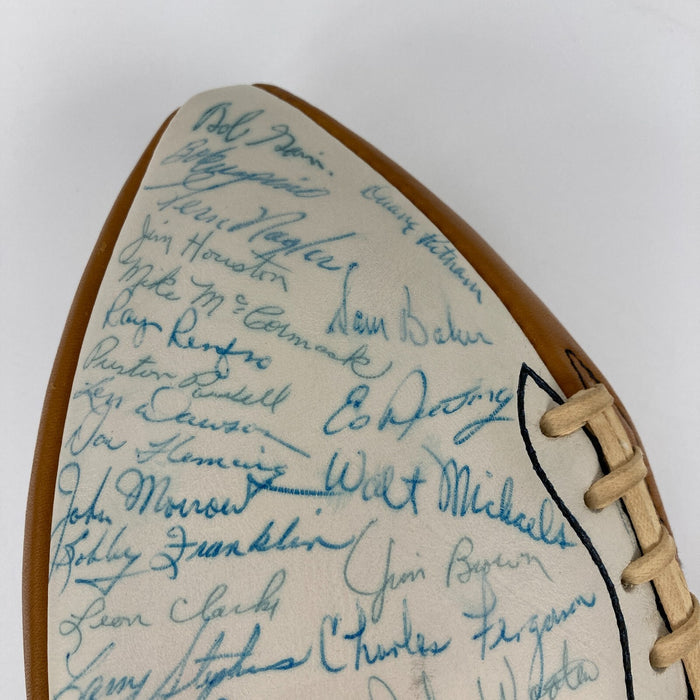 Bob Gain
Bob
Fern Nagler
Jim Houston
Mike McCormack
Ray Renfro
Preston Powell
Len Dawson
Don Fleming
John Morrow
Bobby Franklin
Leon Clarke
Larry Stephens
Duane Putnam
Sam Baker
Ed
Walt Michaels
Jim Brown
Charles Ferguson
John Wooten